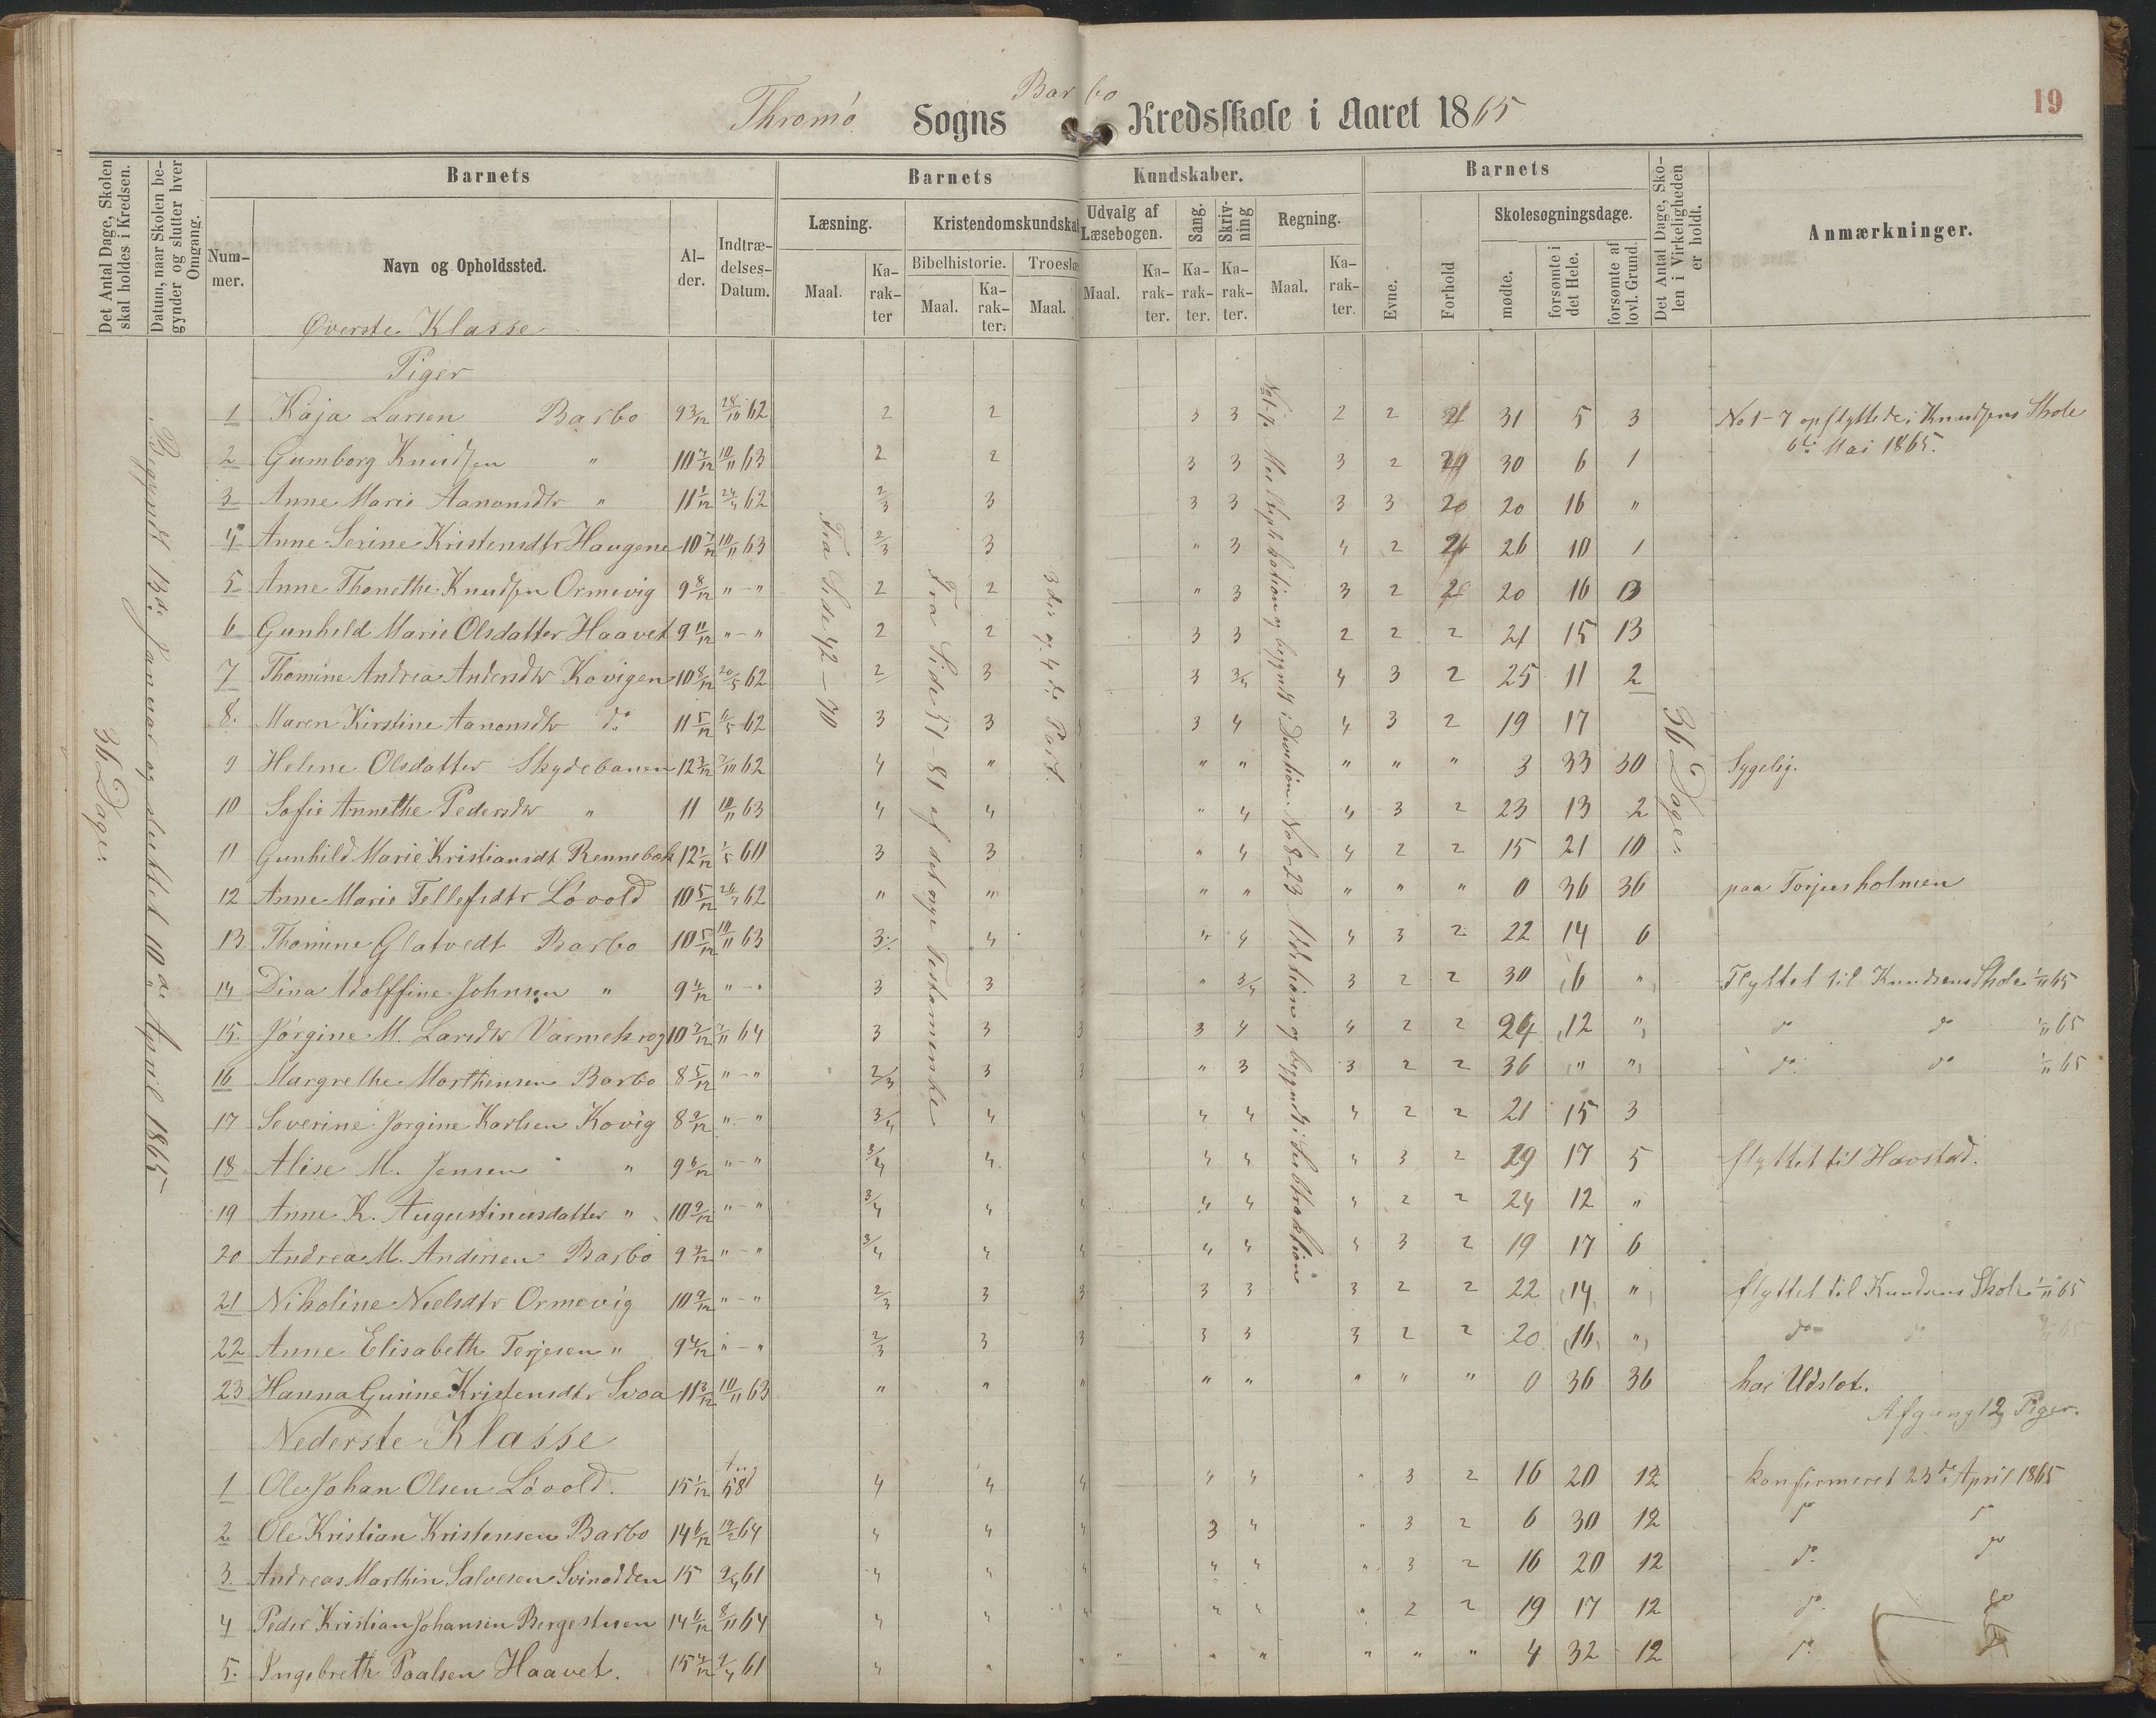 19
Thromø Sogns Barbo Kredsskole i Aaret 1865
Det Antal Dage, Skolen skal holdes i Kredsen.
Datum, naar Skolen begynder og slutter hver Omgang.
Barnets
Barnets
Kundskaber.
Barnets
Det Antal Dage, Skolen i Virkeligheden er holdt.
Anmærkninger.
Nummer.
Navn og Opholdssted.
Alder.
Indtrædelses-Datum.
Læsning.
Kristendomskundska
Udvalg af Læsebogen.
Sang.
Skrivning
Regning.
Evne.
Forhold
Skolesøgningsdage.
Bibelhistorie.
Troeslæ
Maal.
Karakter
Maal.
Karakter.
Maal.
Maal.
Karakter.
Karakter.
Karakter.
Maal.
Karakter.
mødte.
forsømte i det Hele.
forsømte af lovl. Grund.
36 Dage.
Begyndt 13de Januar og sluttet 10de April 1865
Fra Side 42–70
Fra Side 51–81 af det nye Testamente
3die og 4de Part.
No 1–7 Multiplikation og begyndt i Division. No 8–23 Addition og begyndt i Subtraktion
36 Dage.
Øverste Klasse
Piger
1 Kaja Larsen Barbo 9 3/12 28/10 62 2 2 3 3 2 2 31 5 3 No 1–7 opflyttede i Knudsens Skole
6te Mai 1865.
2 Gumborg Knudsen " 10 7/12 10/11 63 2 2 3 3 3 2 30 6 1
3 Anne Marie Aanonsdtr " 11 1/12 24/4 62 2/3 3 3 3 3 3 20 20 16 "
4 Anne Serine Kristensdtr Haugene 10 7/12 10/11 63 2/3 3 " 3 4 2 26 10 1
5 Anne Thonethe Knudsen Ormevig 9 8/12 " – " 2 2 " 3 3 2 20 16 13
6 Gunhild Marie Olsdatter Haavet 9 11/12 " – " 2 2 3 3 2 2 2 21 15 13
7 Thomine Andrea Andersdtr Kovigen 10 8/12 20/5 62 2 3 3 3/4 4 3 2 25 11 2
8. Maren Kirstine Aanonsdtr do 11 5/12 6/5 62 3 3 3 4 4 3 2 19 17
9 Helene Olsdatter Skydebanen 12 3/12 7/10 62 4 " " " " " " 3 33 30 Sygelig.
10 Sofie Annethe Pedersdtr " 11 10/11 63 4 4 " 4 4 3 2 23 13 2
11 Gunhild Marie Kristiansdt Rennebæk 12 1/12 1/5 60 3 3 " 4 4 2 2 15 21 10
12 Anne Marie Tellefsdtr Løvold 10 5/12 24/4 62 " " " " " " " 0 36 36 paa Torjusholmen
13 Thomine Glatvedt Barbo 10 5/12 10/11 63 3 4 " 4 4 3 2 22 14 6
14 Dina Adolffine Johnsen " 9 4/12 " – " 3 3 " 3/4 3 2 2 30 6 " Flyttet til Knudsens Skole 1/11 65
15. Jørgine M. Larsdtr Varmekrog 10 2/12 7/11 64 3 3 3 3 4 4 2 2 24 12 " do do 1/11 65
16 Margrethe Morthensen Barbo 8 5/12 " – " 2/3 3 3 " 3 3 2 2 36 " " do do 1/11 65
17 Severine Jørgine Karlsen Kovig 8 9/12 " – " 3/4 4 4 4 4 2 2 21 15 3
18 Alise M. Jensen " 9 6/12 " – " 3/4 4 4 4 4 3 2 29 17 5 flyttet til Havstad.
19 Anne K. Augustinusdatter " 10 9/12 " – " 3/4 4 4 4 4 2 2 24 12 "
20 Andrea M. Andersen Barbo 9 9/12 " – " 3/4 4 4 4 4 3 2 19 17 6
21 Nikoline Nielsdtr Ormevig 10 9/12 " – " 2/3 3 3 3 3 3 2 2 22 14 " flyttet til Knudsens Skole 1/11 65
22 Anne Elisabeth Terjesen " 9 4/12 " – " 2/3 3 3 3 3 3 2 2 20 16 " do
23 Hanna Gurine Kristensdtr Svoa 11 3/12 10/11 63 " " " " " " " " 0 36 36 har Udslot.
Afgang 12 Piger.
Nederste Klasse
1 Ole Johan Olsen Løvold. 15 1/12 Aug 58 4 4 4 4 4 " 3 2 16 20 12 konfirmeret 23de April 1865
2 Ole Kristian Kristensen Barbo 14 6/12 19/2 64 4 4 4 3 4 " 3 2 6 30 12 do do
3. Andreas Marthin Salvesen Svinodden 15 9/4 61 4 4 4 4 4 " 3 2 16 20 12 do do
4 Peder Kristian Johansen Bergestuen 14 6/12 8/11 64 4 4 4 4 4 " 2 2 19 17 12 do do
5. Ingebreth Paalsen Haavet. 15 4/12 9/4 61 4 " " " " " " " 4 32 12 do